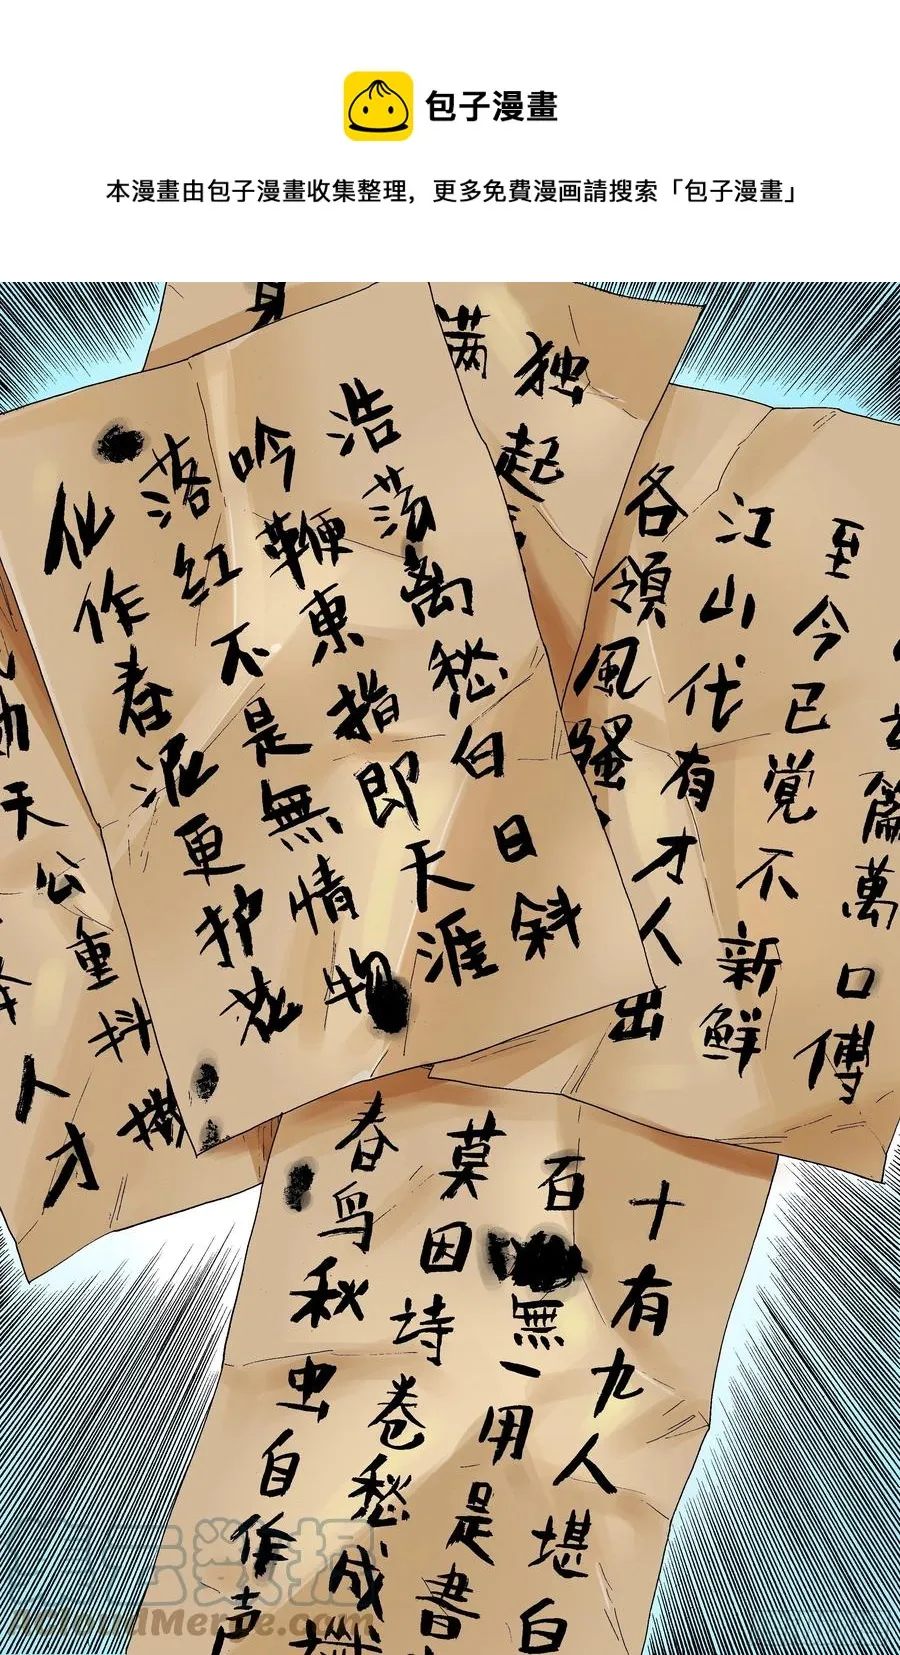 包子漫畫
本漫畫由包子漫畫收集整理，更多免費漫画請搜索「包子漫畫」
身
满
独
起
浩荡离愁白日斜
吟鞭東指即天涯
落红不是無情物
化作春泥更护花
篇萬口傳
至今已觉不新鮮
江山代有才人出
各領風骚
天公重抖擞
人才
十有九人堪白
百無一用是書
莫因诗卷愁成
春鸟秋虫自作声
ACloudMerge.com